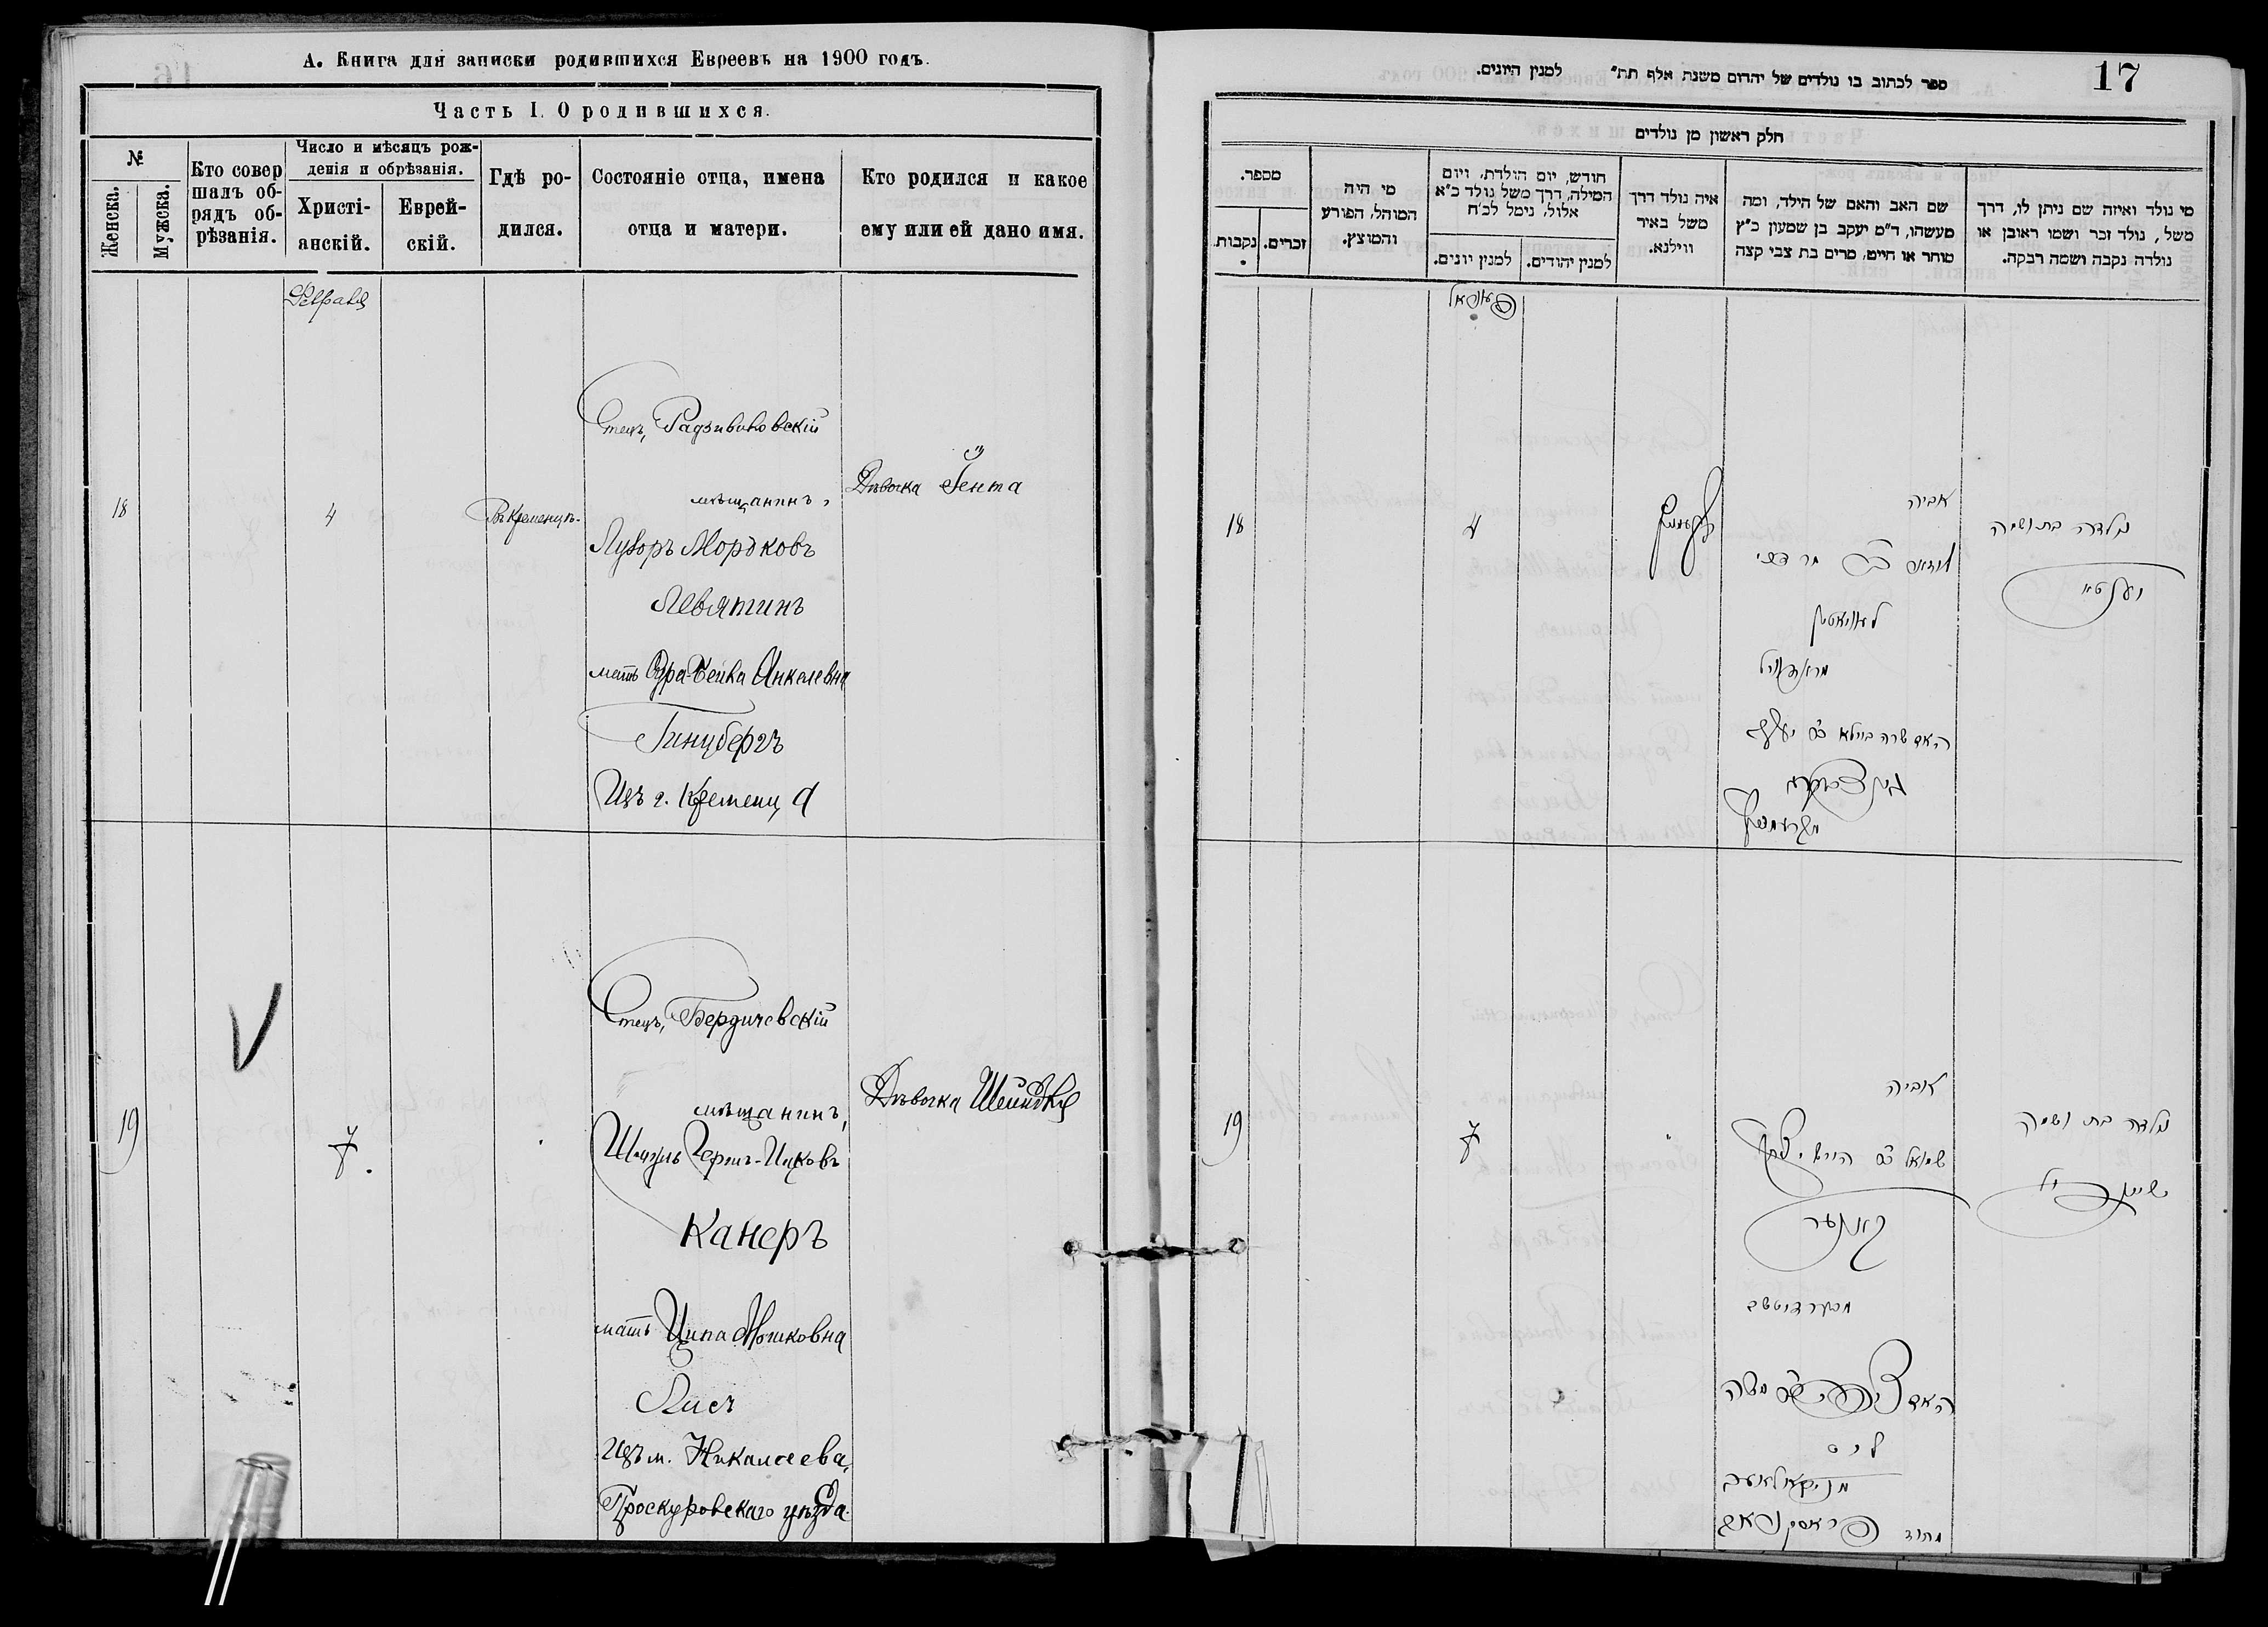 А. Книга для записки родившихся Евреевъ на 1900 годъ.
Часть I. О родившихся.
№
Женска.
Мужска.
Кто совер
шалъ об-
рядъ об-
рѣзанія.
Число и мѣсяцъ рож-
денія и обрѣзанія.
Христі-
анскій.
Еврей-
скій.
Гдѣ ро-
дился.
Состояніе отца, имена
отца и матери.
Кто родился и какое
ему или ей дано имя.
Февраля
18
4
Въ Кременцѣ.
Отецъ, Радзивиловскій
мѣщанинъ,
Мордковъ
Левятинъ
мать Сура-Бейла Янкелевна
Гинцбергъ
Изъ г. Кременца
Дѣвочка Іента
19
7.
Отецъ, Бердичевскій
мѣщанинъ,
Шмуль Герш-Ицковъ
Канеръ
мать Ципа Мошковна
Лисъ
Изъ м. Николаева,
Проскуровскаго уѣзда.
Дѣвочка Шейндля
17
ספר לכתוב בו נולדים של יהודים משנת אלף תת״ למנין היונים.
חלק ראשון מן נולדים
מספר.
נקבות.
זכרים.
מי היה
המוהל, הפורע
והמוצץ.
חודש, יום הולדת, ויום
המילה, דרך משל נולד כ״א
אלול, נימל לכ״ח
למנין יונים.
למנין יהודים.
איה נולד דרך
משל באיר
ווילנא.
שם האב והאם של הילד, ומה
מעשהו, ד״מ יעקב בן שמעון כ״ץ
סוחר או חייט, מרים בת צבי קצה
מי נולד ואיזה שם ניתן לו, דרך
משל, נולד זכר ושמו ראובן או
נולדה נקבה ושמה רבקה.
18
4
אביה
לעוויאטין
האם שרה ביילא בת יעקב
גינצבערג
מקרעמניץ
נולדה בת ושמה
יענטא
19
7
אביה
שמואל ב״ר הירש יצחק
קאנער
מבערדיטשב
משה
ליס
מניקאלאעב
מחוז פראסקוראב
נולדה בת ושמה
שיינדיל